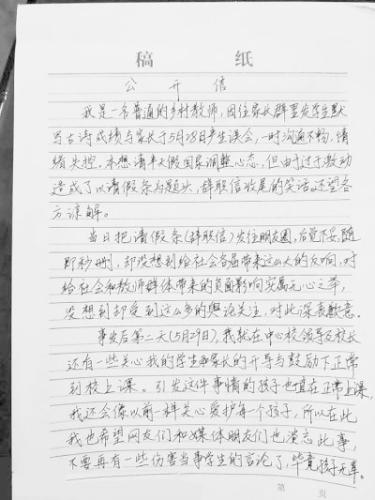 稿 纸
公 开 信
我是一名普通的乡村教师，因往家长群里发学生默
写古诗成绩与家长于5月28日产生误会，一时沟通不畅，情
绪失控。本想请半天假回家调整心态，但由于过于激动
造成了以请假条为题头，辞职信收尾的笑话。还望各
方谅解。
当日把请假条(辞职信)发往朋友圈，后觉不妥，随
即秒删，却没想到给社会各界带来这么大的反响，对
给社会和教师群体带来的负面影响实属无心之举，
没想到却受到这么多的舆论关注，对此深表歉意。
事发后第二天(5月29日)，我就在中心校领导及校长
还有一些关心我的学生和家长的开导与鼓励下正常
到校上课。引发这件事情的孩子也在正常上课，
我还会像以前一样关心爱护每个孩子，所以在此
我也希望网友们和媒体朋友们也淡忘此事，
不要再有一些伤害当事学生的言论了，毕竟孩子无辜。
第 页